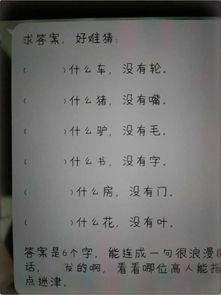 求答案，好难猜：
（　　）什么车，没有轮。
（　　）什么猪，没有嘴。
（　　）什么驴，没有毛。
（　　）什么书，没有字。
（　　）什么房，没有门。
（　　）什么花，没有叶。
答案是6个字，能连成一句很浪漫的
话，　发的啊，看看哪位高人能指
点迷津。